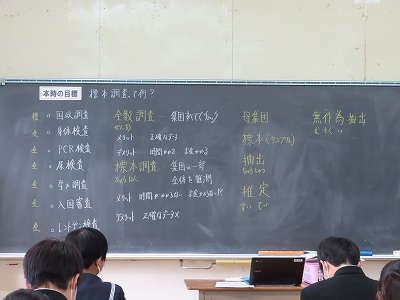 本時の目標 標本調査って何?
標 ○ 国政調査
全 ○ 身体検査
全 ○ PCR検査
全 ○ 尿検査
全
全 ○ 入国審査
全 ○ レントゲン検査
全数調査 … 集団すべて
ぜんすう
メリット … 正確なデータ
デメリット … 時間がかかる お金がかかる
標本調査 集団の一部
ひょうほん 全体を推測
メリット 時間がかからない お金がかからない
デメリット 正確なデータ×
母集団
標本(サンプル)
抽出
ちゅうしゅつ
推定
すいてい
無作為抽出
むさくい